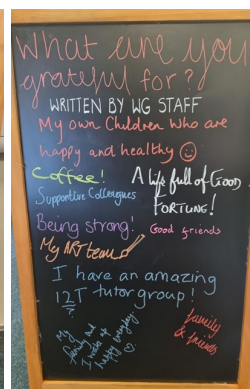 What are you
grateful for?
WRITTEN BY WG STAFF
My own Children who are
happy and healthy
Coffee!
A life full of GOOD
FORTUNE!
Supportive Colleagues
Being strong!
Good friends
My ART team
I have an amazing
12T tutor group!
My
family and
friends
happy everyday.
family
& friends